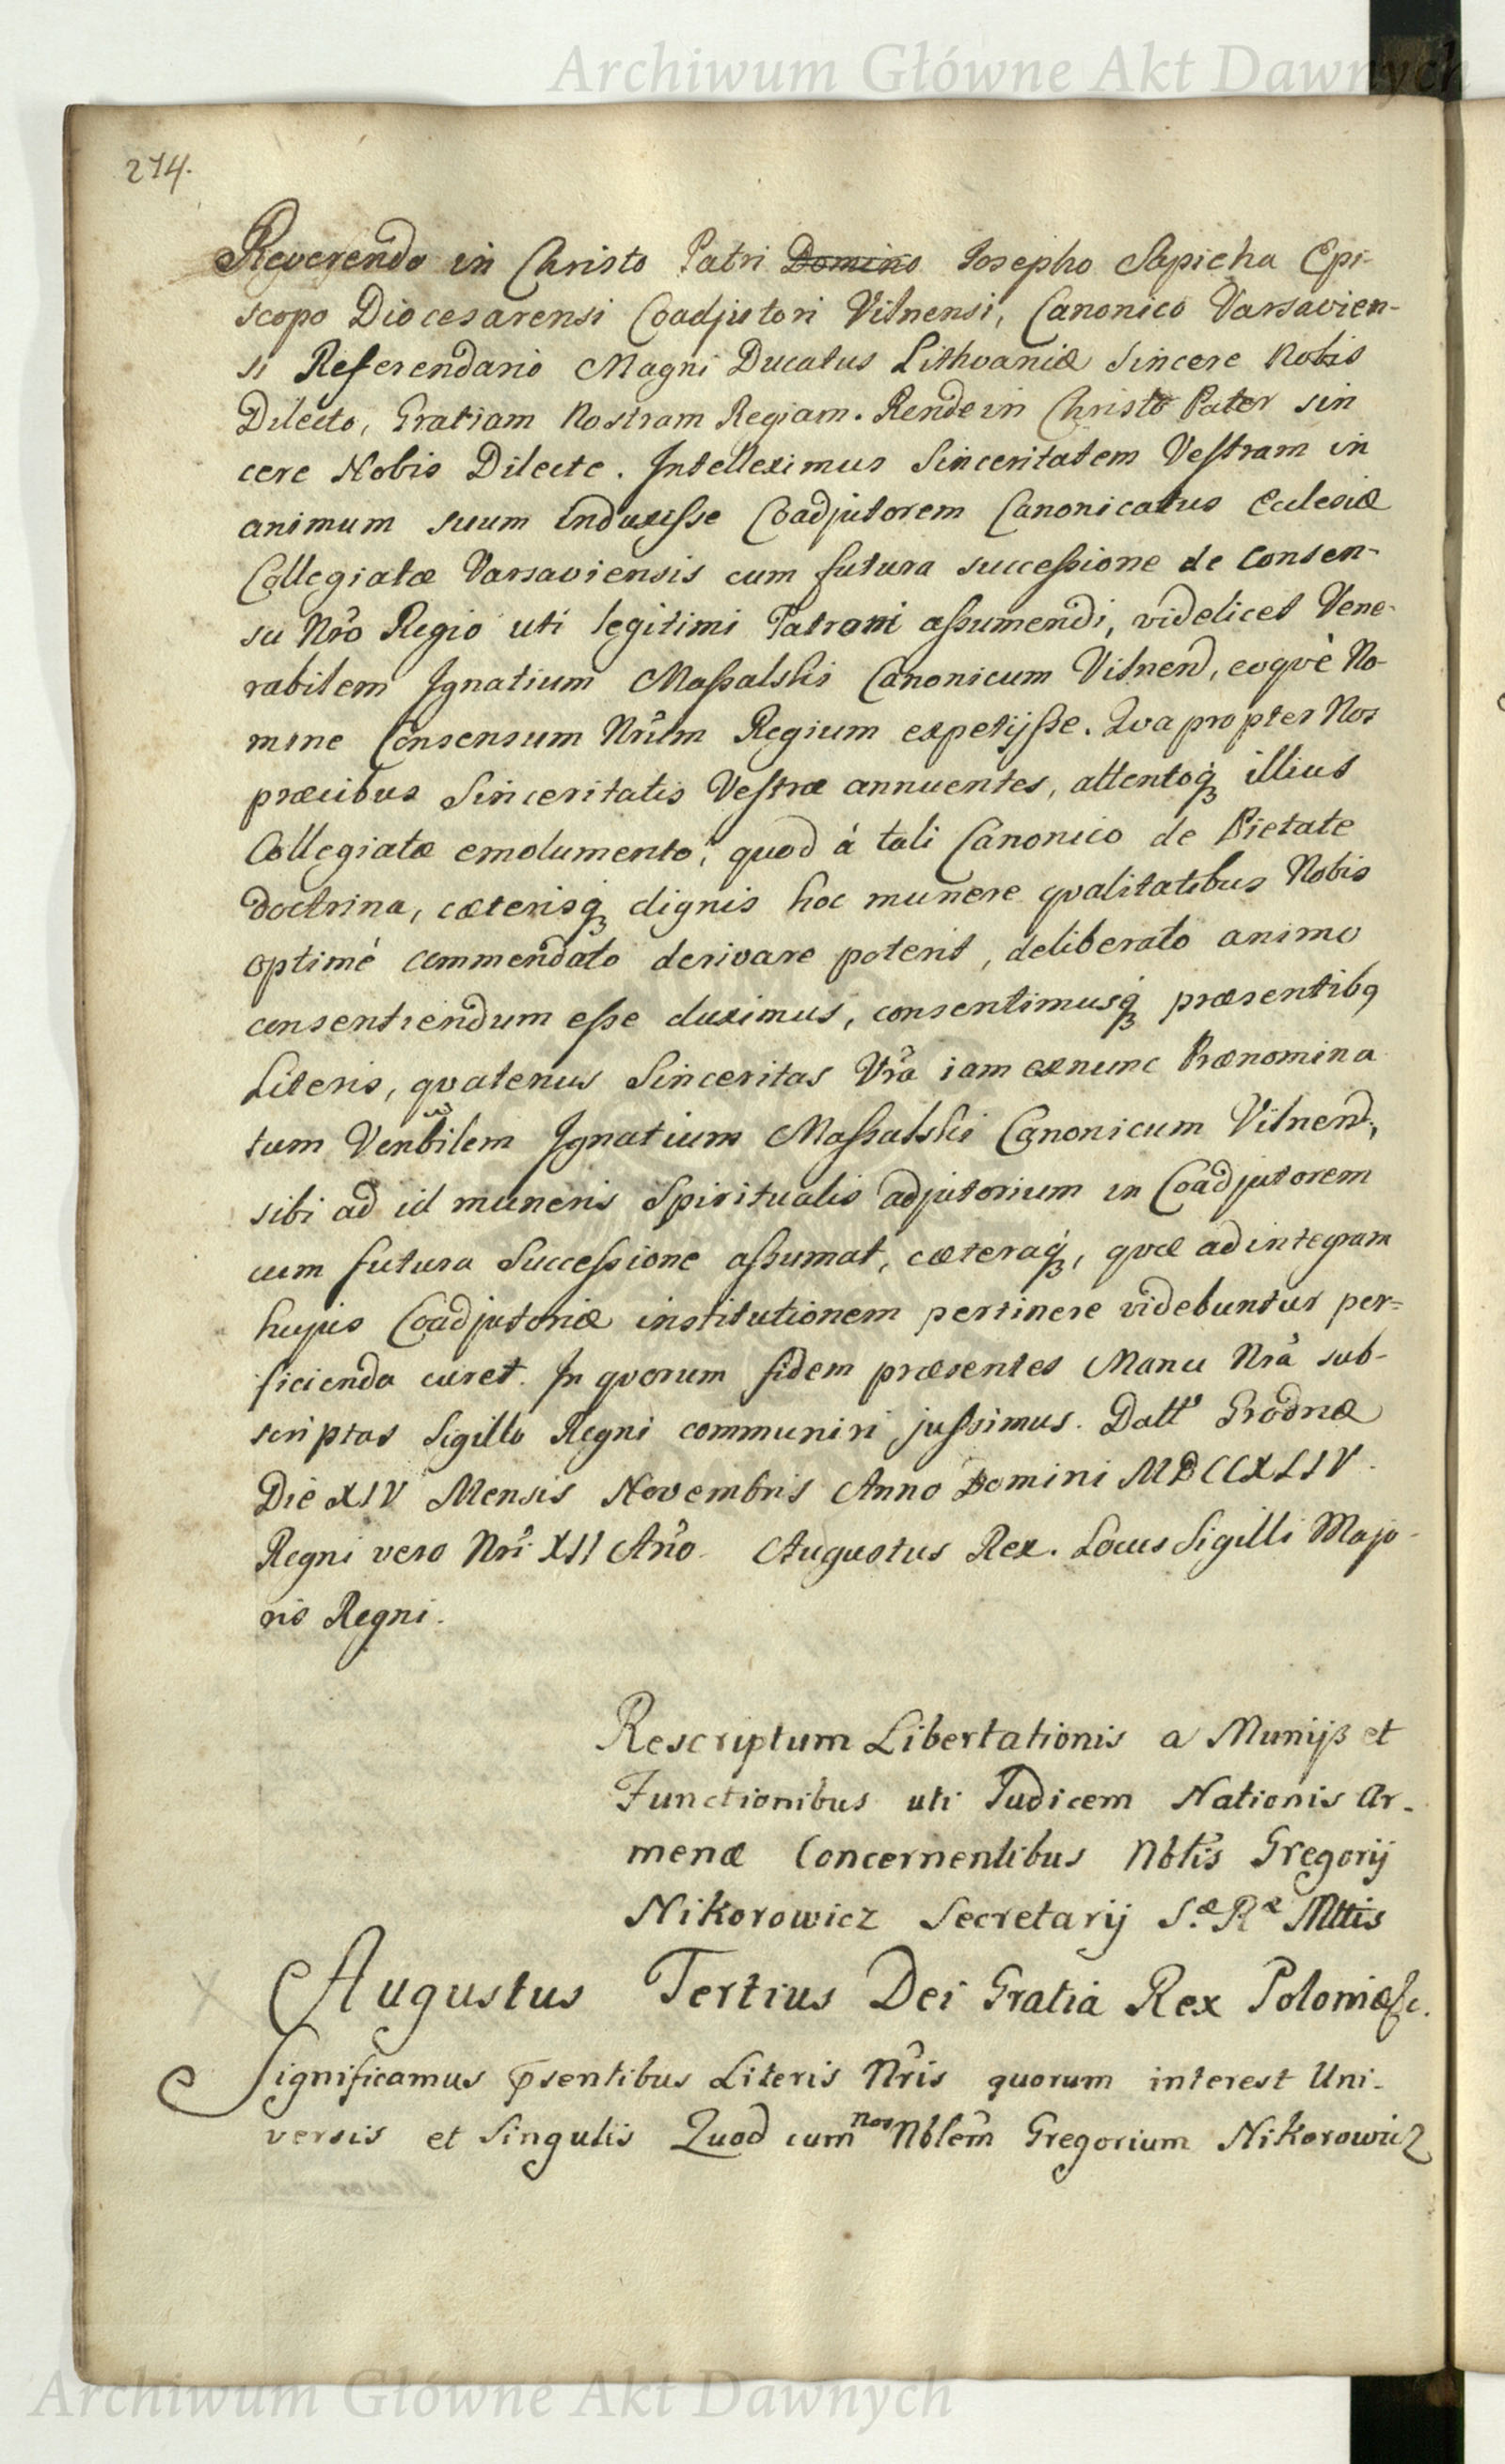 Archiwum Główne Akt Dawnych
274.
Reverendo in Christo Patri Domino Josepho Sapieha Epi-
scopo Diocesarensi Coadjutori Vilnensi, Canonico Varsavien-
si Referendario Magni Ducatus Lithvaniæ Sincere Nobis
Dilecto, Gratiam Nostram Regiam. Rende in Christo Pater sin
cere Nobis Dilecte. Intelleximus Sinceritatem Vestram in
animum suum induxisse Coadjutorem Canonicatus Ecclesiæ
Collegiatæ Varsaviensis cum futura successione de consen-
su Nr̃o Regio uti legitimi Patroni assumendi, videlicet Vene-
rabilem Ignatium Massalski Canonicum Vilnen, eoqvè No-
mine Consensum Nr̃um Regium expetijsse. Qvapropter Nos
præcibus Sinceritatis Vestræ annuentes, attentoq́ꝫ illius
Collegiatæ emolumento, quod à tali Canonico de Pietate
doctrina, cæterisq́ꝫ dignis hoc munere qvalitatibus Nobis
optimé commendato derivare poterit, deliberato animo
consentiendum esse duximus, consentimusq́ꝫ præsentibꝯ
Literis, qvatenus Sinceritas Vr̃a iam exnunc Prænomina
tum Venbilem Ignatium Massalski Canonicum Vilnen,
sibi ad id muneris Spiritualis adjutorium in Coadjutorem
cum futura Successione assumat, cæteraq́ꝫ, qvæ ad integram
hujus Coadjutoriæ institutionem pertinere videbuntur per=
ficienda curet. In qvorum fidem præsentes Manu Nr̃a sub-
scriptas Sigillo Regni communiri jussimus. Datt Grodnæ
Die XIV Mensis Novembris Anno Domini MDCCXLIV.
Regni vero Nr̃i XII An̄o. Augustus Rex. Locus Sigilli Majo-
ris Regni.
Rescriptum Libertationis a Munijs et
Functionibus uti Judicem Nationis Ar-
menæ Concernentibus Nbłis Gregorij
Nikorowicz Secretarij S.æ Ræ Mttis
Augustus Tertius Dei Gratia Rex Poloniæ &c.
Significamus p̄sentibus Literis Nr̃is quorum interest Uni-
versis et Singulis Quod cum nos Nblem̃ Gregorium Nikorowicz
Archiwum Główne Akt Dawnych